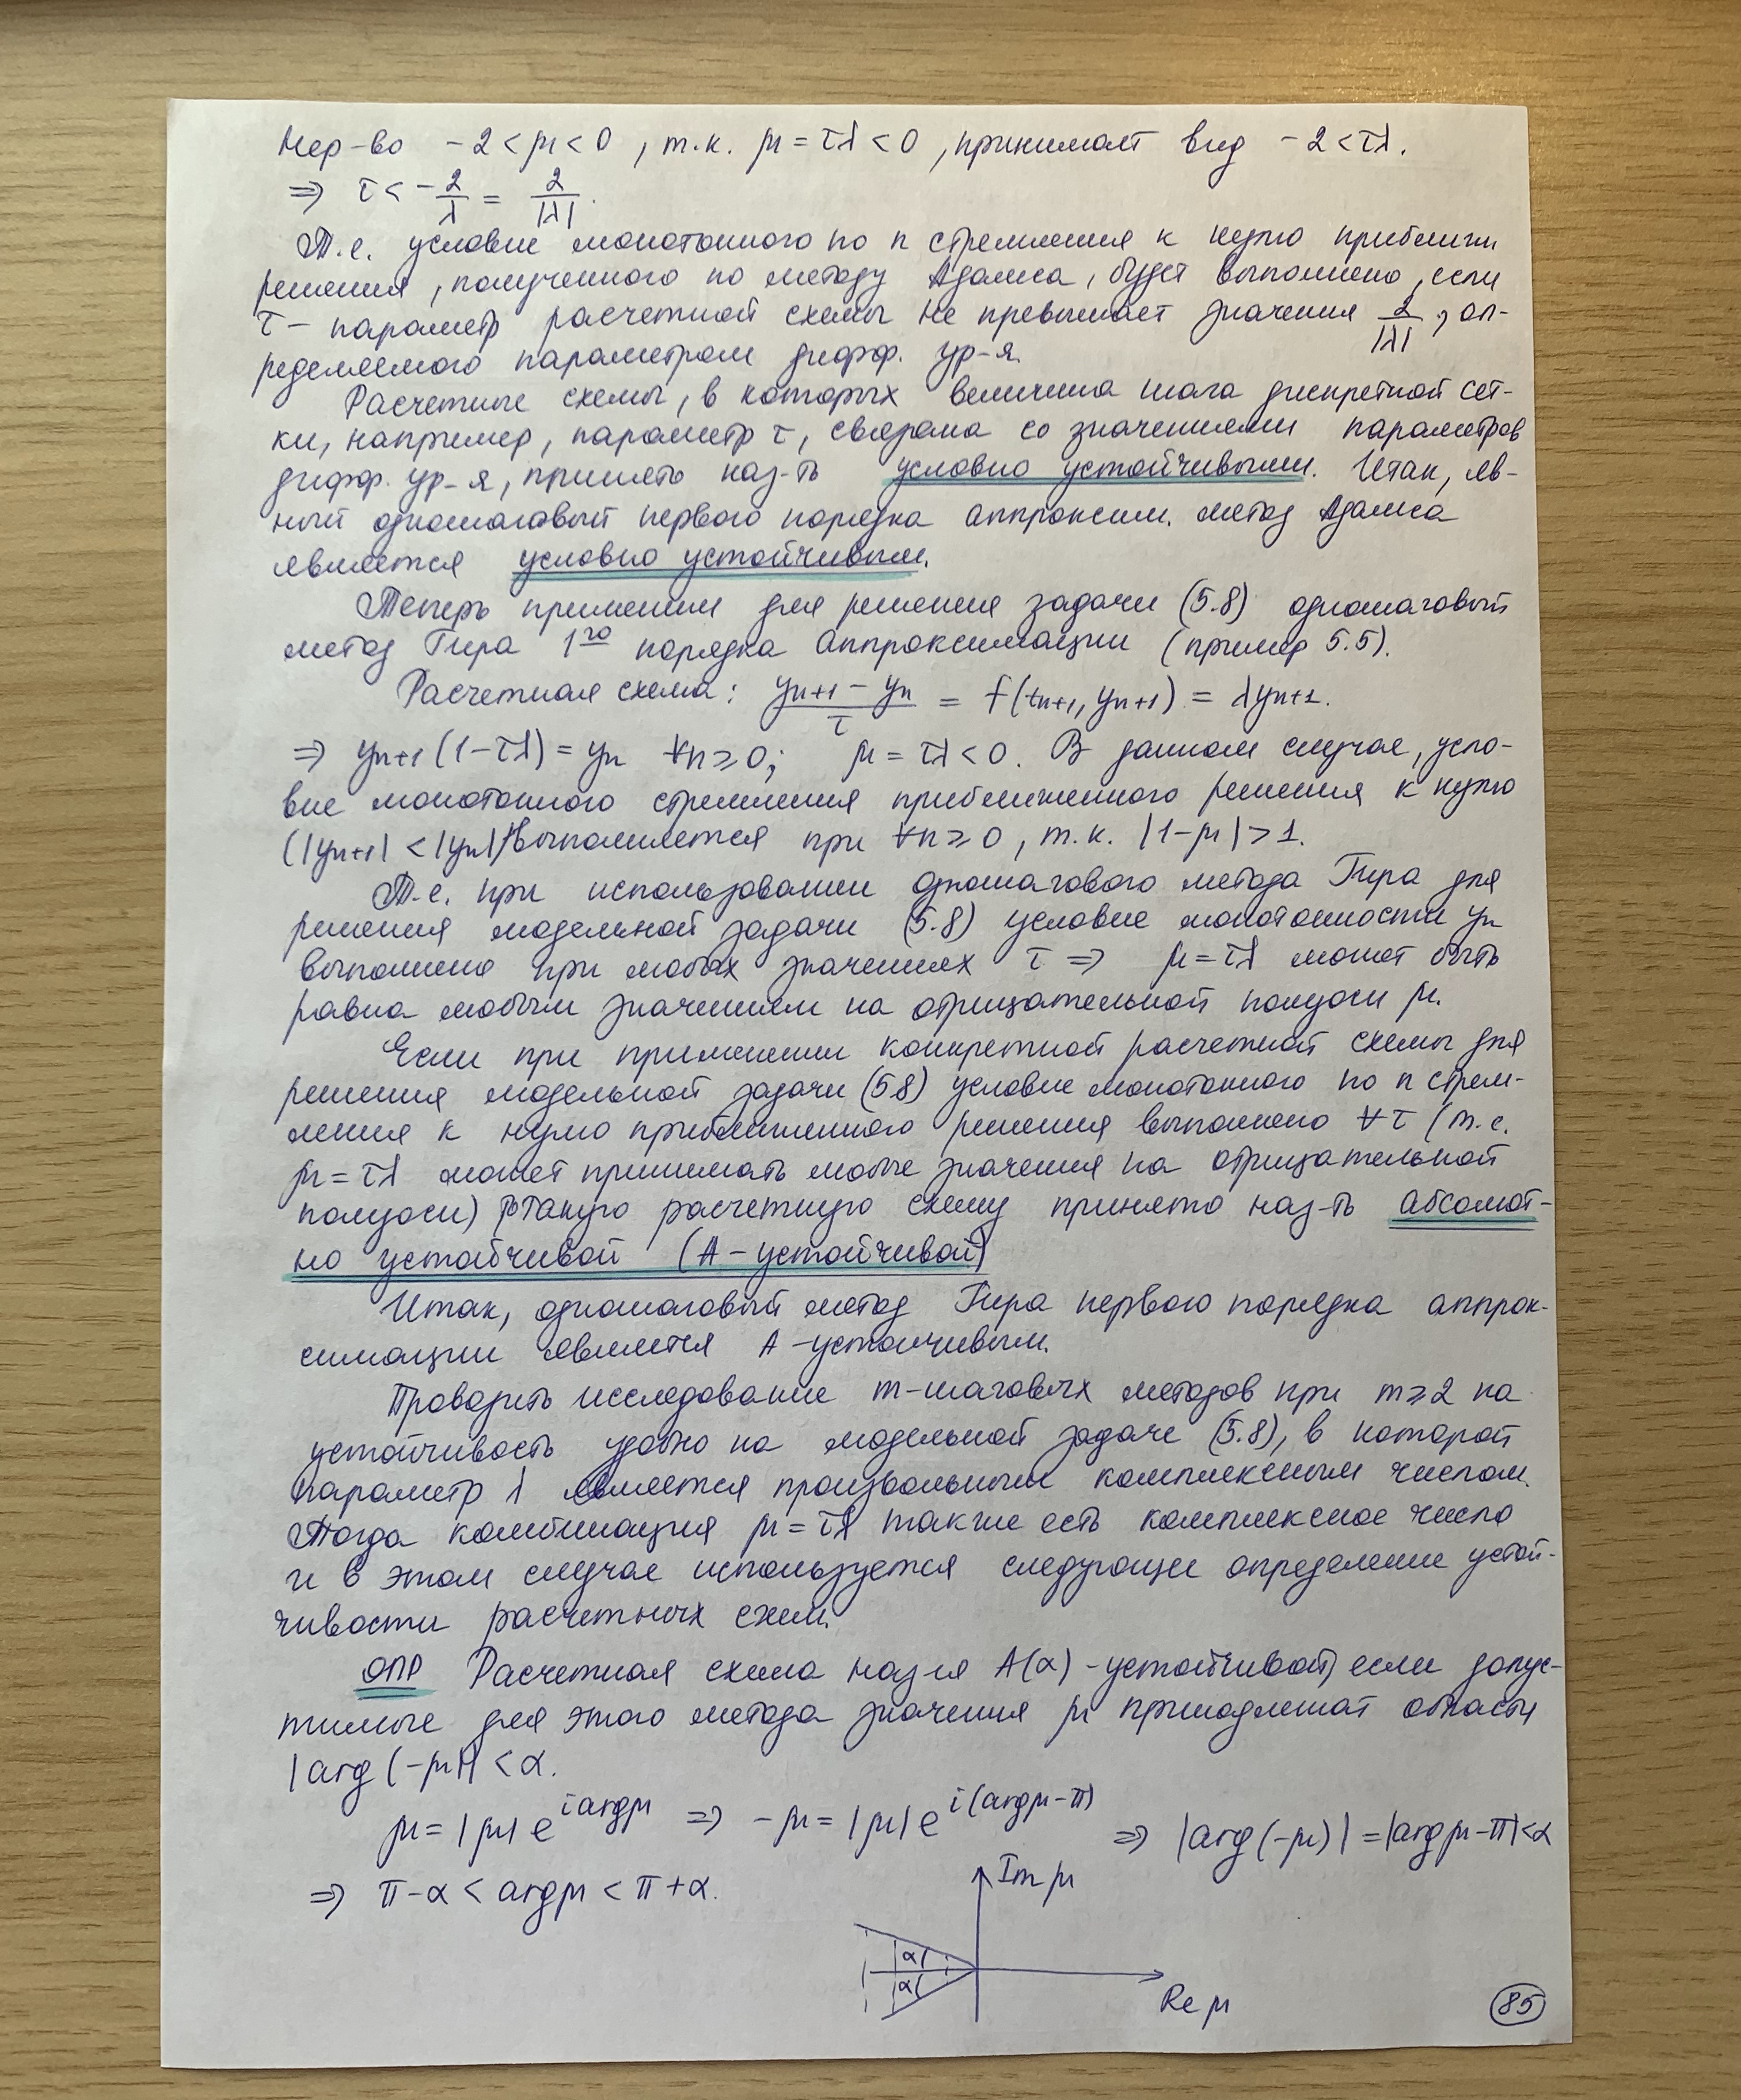 Нер-во -2 < μ < 0, т.к. μ = τλ < 0, принимает вид -2 < τλ.
⇒ τ < -2/λ = 2/|λ|.
Т.е. условие монотонного по n стремления к нулю приближ.
решения, полученного по методу Адамса, будет выполнено, если
τ - параметр расчетной схемы не превышает значения 2/|λ|, оп-
ределяемого параметром дифф. ур-я.
Расчетные схемы, в которых величина шага дискретной сет-
ки, например, параметр τ, связана со значениями параметров
дифф. ур-я, принято наз-ть условно устойчивыми. Итак, яв-
ный одношаговый первого порядка аппроксим. метод Адамса
является условно устойчивым.
Теперь применим для решения задачи (5.8) одношаговый
метод Гира 1го порядка аппроксимации (пример 5.5).
Расчетная схема: (yn+1 - yn)/τ = f(tn+1, yn+1) = λyn+1.
⇒ yn+1(1-τλ) = yn ∀n ≥ 0; μ = τλ < 0. В данном случае, усло-
вие монотонного стремления приближенного решения к нулю
(|yn+1| < |yn|) выполняется при ∀n ≥ 0, т.к. |1-μ| > 1.
Т.е. при использовании одношагового метода Гира для
решения модельной задачи (5.8) условие монотонности yn
выполнено при любых значениях τ ⇒ μ = τλ может быть
равна любым значениям на отрицательной полуоси μ.
Если при применении конкретной расчетной схемы для
решения модельной задачи (5.8) условие монотонного по n стрем-
ления к нулю приближенного решения выполнено ∀τ (т.е.
μ = τλ может принимать любые значения на отрицательной
полуоси) такую расчетную схему принято наз-ть абсолют-
но устойчивой (А-устойчивой)
Итак, одношаговый метод Гира первого порядка аппрок-
симации является А-устойчивым.
Проводить исследование m-шаговых методов при m ≥ 2 на
устойчивость удобно на модельной задаче (5.8), в которой
параметр λ является произвольным комплексным числом.
Тогда комбинация μ = τλ также есть комплексное число
и в этом случае используется следующее определение устой-
чивости расчетных схем.
ОПР Расчетная схема наз-ся А(α)-устойчивой, если допус-
тимые для этого метода значения μ принадлежат области
|arg(-μ)| < α.
μ = |μ| e^{i argμ} ⇒ -μ = |μ| e^{i(argμ-π)} ⇒ |arg(-μ)| = |argμ-π| < α
⇒ π-α < argμ < π+α.
Im μ
α
α
Re μ
85